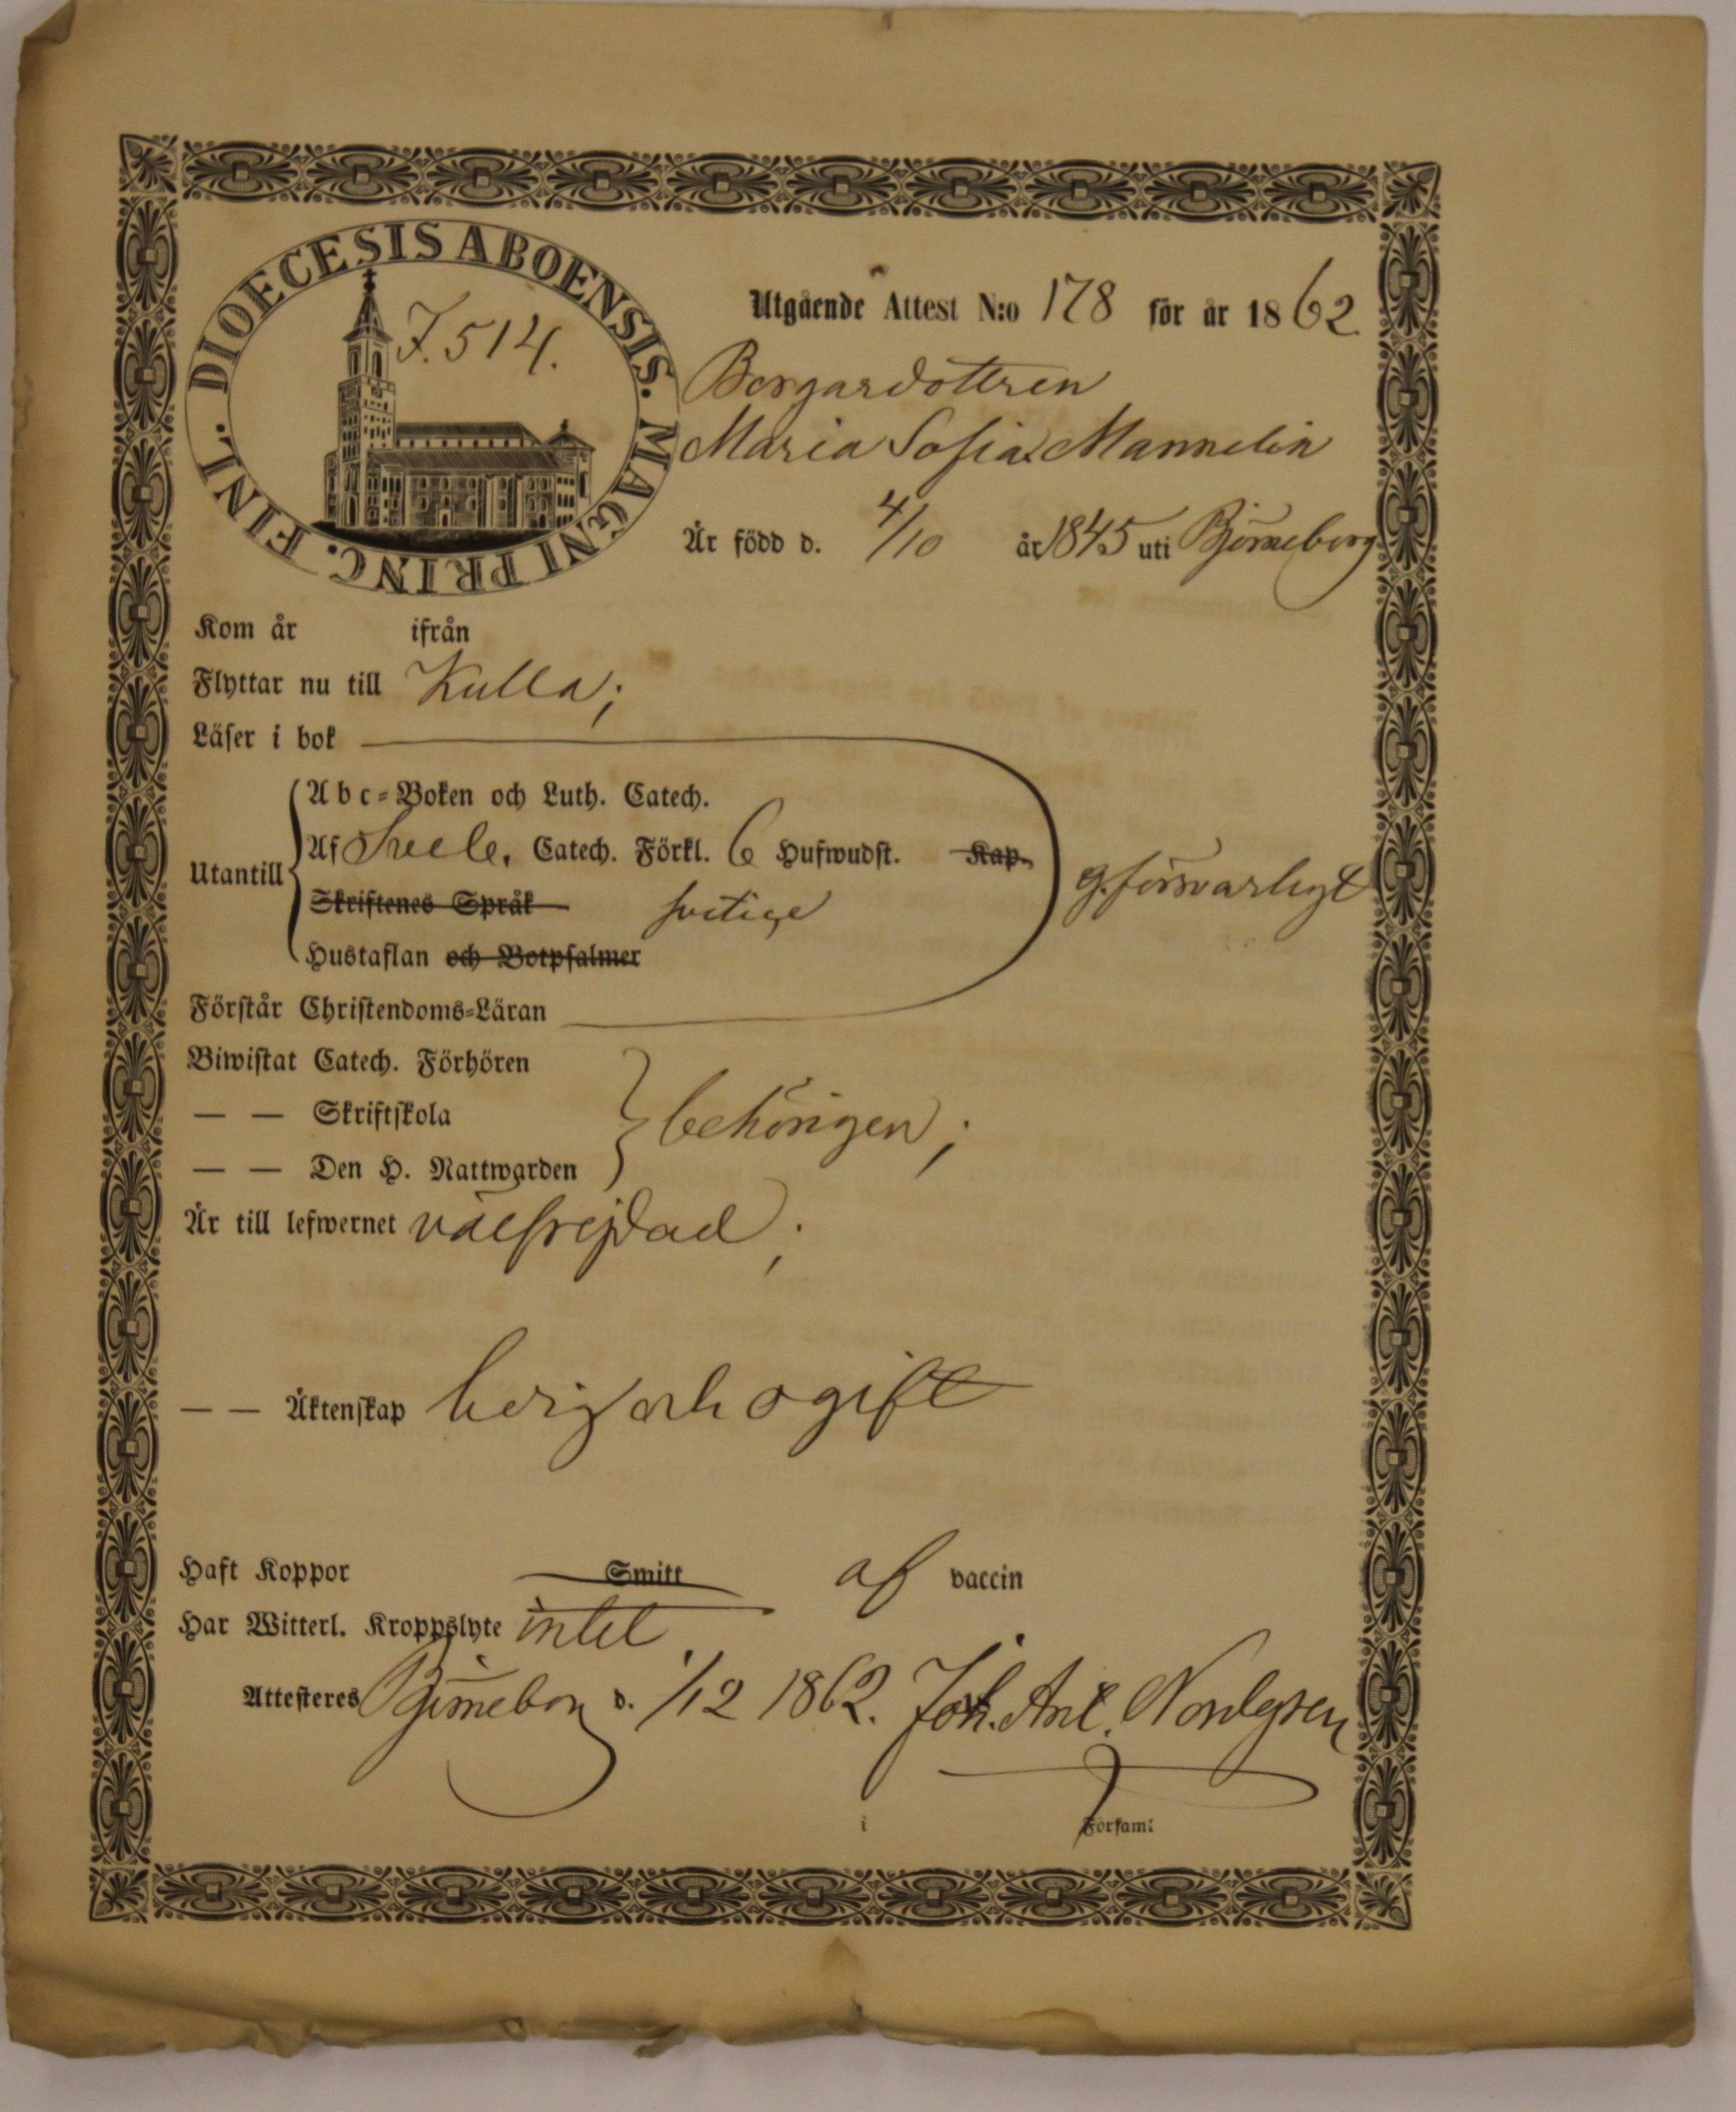 DIOECESIS ABOENSIS. MAGNI PRINC. FINL.
F. 514.
Utgående Attest N:o 178 för år 1862
Borgardottren
Maria Sofia Mannelin
Är född d. 4/10 år 1845 uti Björneborg
Kom år ifrån
Flyttar nu till Kulla;
Läser i bok
Abc-Boken och Luth. Catech.
Utantill Af Sveb. Catech. Förkl. 6 Hufwudst. Kap.
Skriftenes Språk
g. försvarligt
Hustaflan och Botpsalmer
Förstår Christendoms-Läran
Biwistat Catech. Förhören
— — Skriftskola behörigen;
— — Den H. Nattwarden
Är till lefwernet välfrejdad;
— — Äktenskap ledig och ogift
Haft Koppor Smitt af vaccin
Har Witterl. Kroppslyte intet
Attesteras Björneborg d. 1/12 1862. Joh. Ant. Nordgren
i Församl